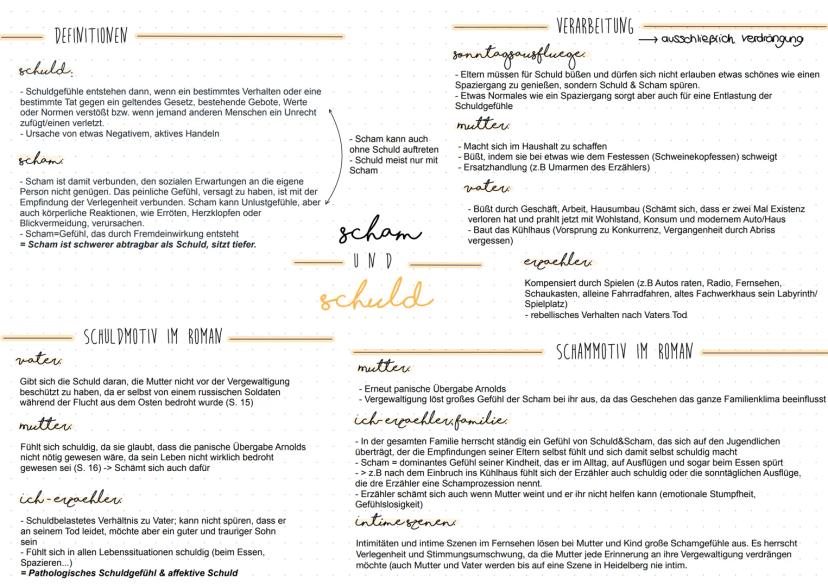 DEFINITIONEN
schuld:
- Schuldgefühle entstehen dann, wenn ein bestimmtes Verhalten oder eine
bestimmte Tat gegen ein geltendes Gesetz, bestehende Gebote, Werte
oder Normen verstößt bzw. wenn jemand anderen Menschen ein Unrecht
zufügt/einen verletzt.
- Ursache von etwas Negativem, aktives Handeln
scham:
- Scham ist damit verbunden, den sozialen Erwartungen an die eigene
Person nicht genügen. Das peinliche Gefühl, versagt zu haben, ist mit der
Empfindung der Verlegenheit verbunden. Scham kann Unlustgefühle, aber
auch körperliche Reaktionen, wie Erröten, Herzklopfen oder
Blickvermeidung, verursachen.
- Scham=Gefühl, das durch Fremdeinwirkung entsteht
= Scham ist schwerer abtragbar als Schuld, sitzt tiefer.
- Scham kann auch
ohne Schuld auftreten
- Schuld meist nur mit
Scham
scham
UND
schuld
VERARBEITUNG
→ ausschließlich verdrängung
sonntagsausfluege:
- Eltern müssen für Schuld büßen und dürfen sich nicht erlauben etwas schönes wie einen
Spaziergang zu genießen, sondern Schuld & Scham spüren.
- Etwas Normales wie ein Spaziergang sorgt aber auch für eine Entlastung der
Schuldgefühle
mutter:
- Macht sich im Haushalt zu schaffen
- Büßt, indem sie bei etwas wie dem Festessen (Schweinekopfessen) schweigt
- Ersatzhandlung (z.B Umarmen des Erzählers)
vater:
- Büßt durch Geschäft, Arbeit, Hausumbau (Schämt sich, dass er zwei Mal Existenz
verloren hat und prahlt jetzt mit Wohlstand, Konsum und modernem Auto/Haus
- Baut das Kühlhaus (Vorsprung zu Konkurrenz, Vergangenheit durch Abriss
vergessen)
erzaehler:
Kompensiert durch Spielen (z.B Autos raten, Radio, Fernsehen,
Schaukasten, alleine Fahrradfahren, altes Fachwerkhaus sein Labyrinth/
Spielplatz)
- rebellisches Verhalten nach Vaters Tod
SCHULDMOTIV IM ROMAN
vater:
Gibt sich die Schuld daran, die Mutter nicht vor der Vergewaltigung
beschützt zu haben, da er selbst von einem russischen Soldaten
während der Flucht aus dem Osten bedroht wurde (S. 15)
mutter:
Fühlt sich schuldig, da sie glaubt, dass die panische Übergabe Arnolds
nicht nötig gewesen wäre, da sein Leben nicht wirklich bedroht
gewesen sei (S. 16) -> Schämt sich auch dafür
ich-erzaehler:
- Schuldbelastetes Verhältnis zu Vater; kann nicht spüren, dass er
an seinem Tod leidet, möchte aber ein guter und trauriger Sohn
sein
- Fühlt sich in allen Lebenssituationen schuldig (beim Essen,
Spazieren...)
= Pathologisches Schuldgefühl & affektive Schuld
SCHAMMOTIV IM ROMAN
mutter:
- Erneut panische Übergabe Arnolds
- Vergewaltigung löst großes Gefühl der Scham bei ihr aus, da das Geschehen das ganze Familienklima beeinflusst
ich-erzaehler,familie:
- In der gesamten Familie herrscht ständig ein Gefühl von Schuld&Scham, das sich auf den Jugendlichen
überträgt, der die Empfindungen seiner Eltern selbst fühlt und sich damit selbst schuldig macht
- Scham = dominantes Gefühl seiner Kindheit, das er im Alltag, auf Ausflügen und sogar beim Essen spürt
- > z.B nach dem Einbruch ins Kühlhaus fühlt sich der Erzähler auch schuldig oder die sonntäglichen Ausflüge,
die dre Erzähler eine Schamprozession nennt.
- Erzähler schämt sich auch wenn Mutter weint und er ihr nicht helfen kann (emotionale Stumpfheit,
Gefühlslosigkeit)
intime szenen:
Intimitäten und intime Szenen im Fernsehen lösen bei Mutter und Kind große Schamgefühle aus. Es herrscht
Verlegenheit und Stimmungsumschwung, da die Mutter jede Erinnerung an ihre Vergewaltigung verdrängen
möchte (auch Mutter und Vater werden bis auf eine Szene in Heidelberg nie intim.